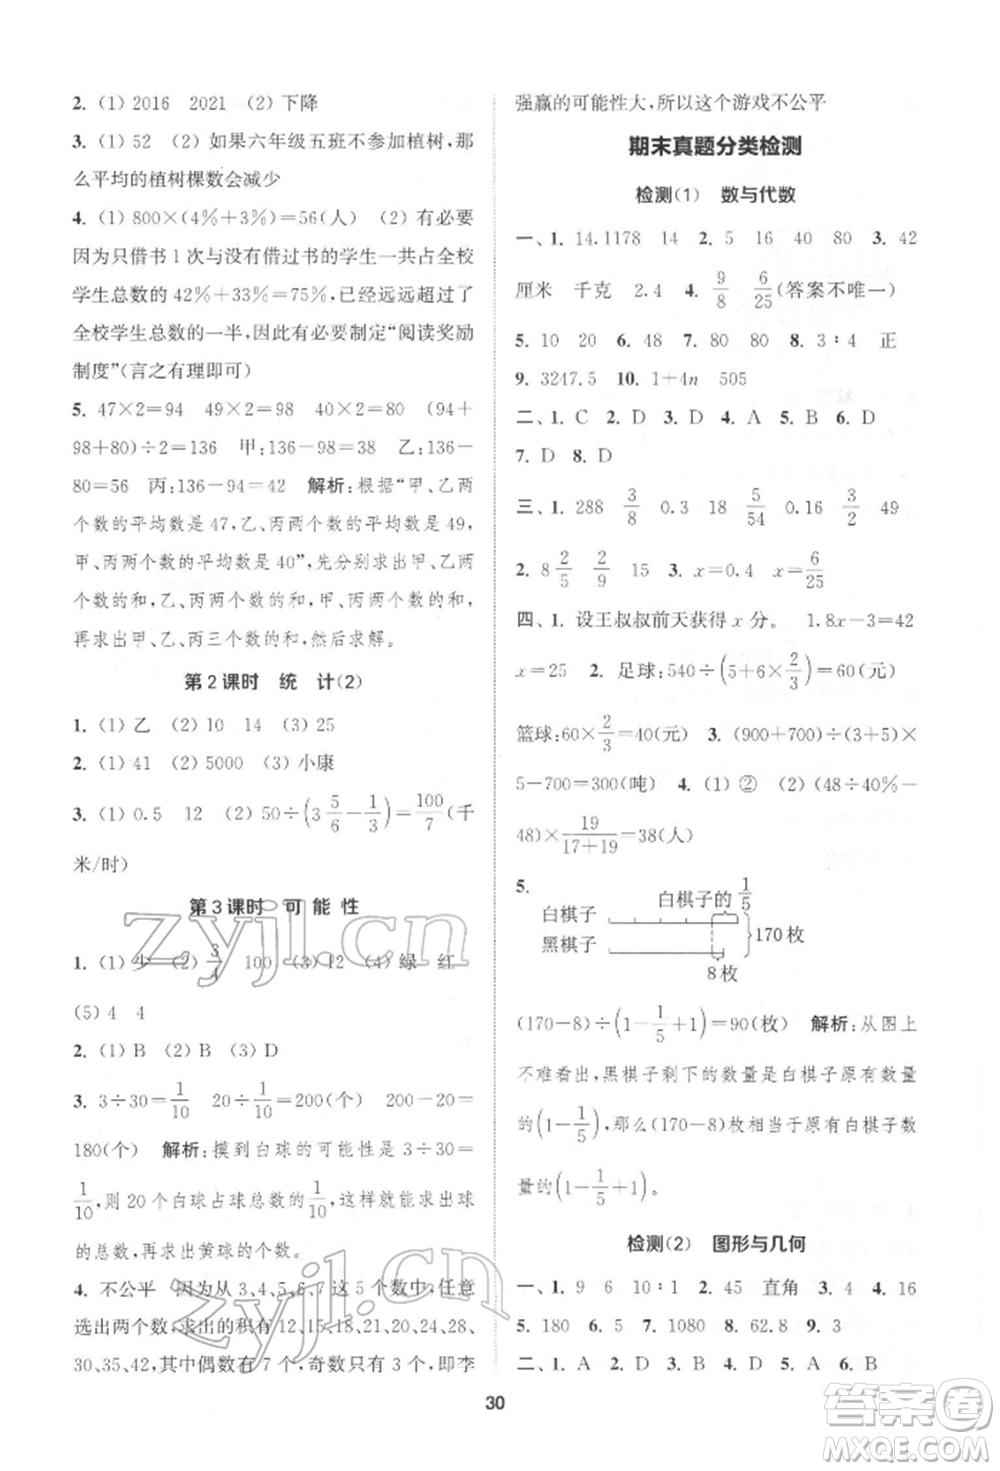 2. (1) 2016 2021 (2) 下降
3. (1) 52 (2) 如果六年级五班不参加植树,那
么平均的植树棵数会减少
4. (1) 800×(4%+3%)=56(人) (2) 有必要
因为只借书 1 次与没有借过书的一共占全校
学生总数的 42%+33%=75%,已经远远超过了
全校学生总数的一半,因此有必要制定“阅读奖励
制度”(言之有理即可)
5. 47×2=94 49×2=98 40×2=80 (94+
98+80)÷2=136 甲:136-98=38 乙:136-
80=56 丙:136-94=42 解析:根据“甲、乙两
个数的平均数是 47,乙、丙两个数的平均数是 49,
甲、丙两个数的平均数是 40”,先分别求出甲、乙两
个数的和,乙、丙两个数的和,甲、丙两个数的和,
再求出甲、乙、丙三个数的和,然后求解。
第 2 课时 统 计(2)
1. (1) 乙 (2) 10 14 (3) 25
2. (1) 41 (2) 5000 (3) 小康
3. (1) 0.5 12 (2) 50÷(3 5/6 - 1/3)=100/7(千
米/时)
第 3 课时 可 能 性
1. (1) 少 (2) 3/4 100 (3) 12 (4) 绿 红
(5) 4 4
2. (1) B (2) B (3) D
3. 3÷30=1/10 20÷1/10=200(个) 200-20=
180(个) 解析:摸到白球的可能性是 3÷30=
1/10,则 20 个白球占球总数的 1/10,这样就能求出球
的总数,再求出黄球的个数。
4. 不公平 因为从 3、4、5、6、7 这 5 个数中,任意
选出两个数,求出的积有 12、15、18、21、20、24、28、
30、35、42,其中偶数有 7 个,奇数只有 3 个,即李
强赢的可能性大,所以这个游戏不公平
期末真题分类检测
检测(1) 数与代数
一、1. 14.1178 14 2. 5 16 40 80 3. 42
厘米 千克 2.4 4. 9/8 6/25(答案不唯一)
5. 10 20 6. 48 7. 80 80 8. 3∶4 正
9. 3247.5 10. 1+4n 505
二、1. C 2. D 3. D 4. A 5. B 6. D
7. D 8. D
三、1. 288 3/8 0.3 18 5/54 0.16 3/2 49
2. 8 2/5 2/9 15 3. x=0.4 x=6/25
四、1. 设王叔叔前天获得 x 分。 1.8x-3=42
x=25 2. 足球:540÷(5+6×2/3)=60(元)
篮球:60×2/3=40(元) 3. (900+700)÷(3+5)×
5-700=300(吨) 4. (1) ② (2) (48÷40%-
48)×19/(17+19)=38(人)
5.
白棋子的 1/5
白棋子
黑棋子
170 枚
8 枚
(170-8)÷(1-1/5+1)=90(枚) 解析:从图上
不难看出,黑棋子剩下的数量是白棋子原有数量
的(1-1/5),那么(170-8)枚相当于白棋子原有数
量的(1-1/5+1)。
检测(2) 图形与几何
一、1. 9 6 10∶1 2. 45 直角 3. 4 4. 16
5. 180 6. 5 7. 1080 8. 62.8 9. 3
二、1. A 2. B 3. B 4. A 5. A 6. B
30
zyjl.cn
zyjl.cn
答案圈
MXQE.COM